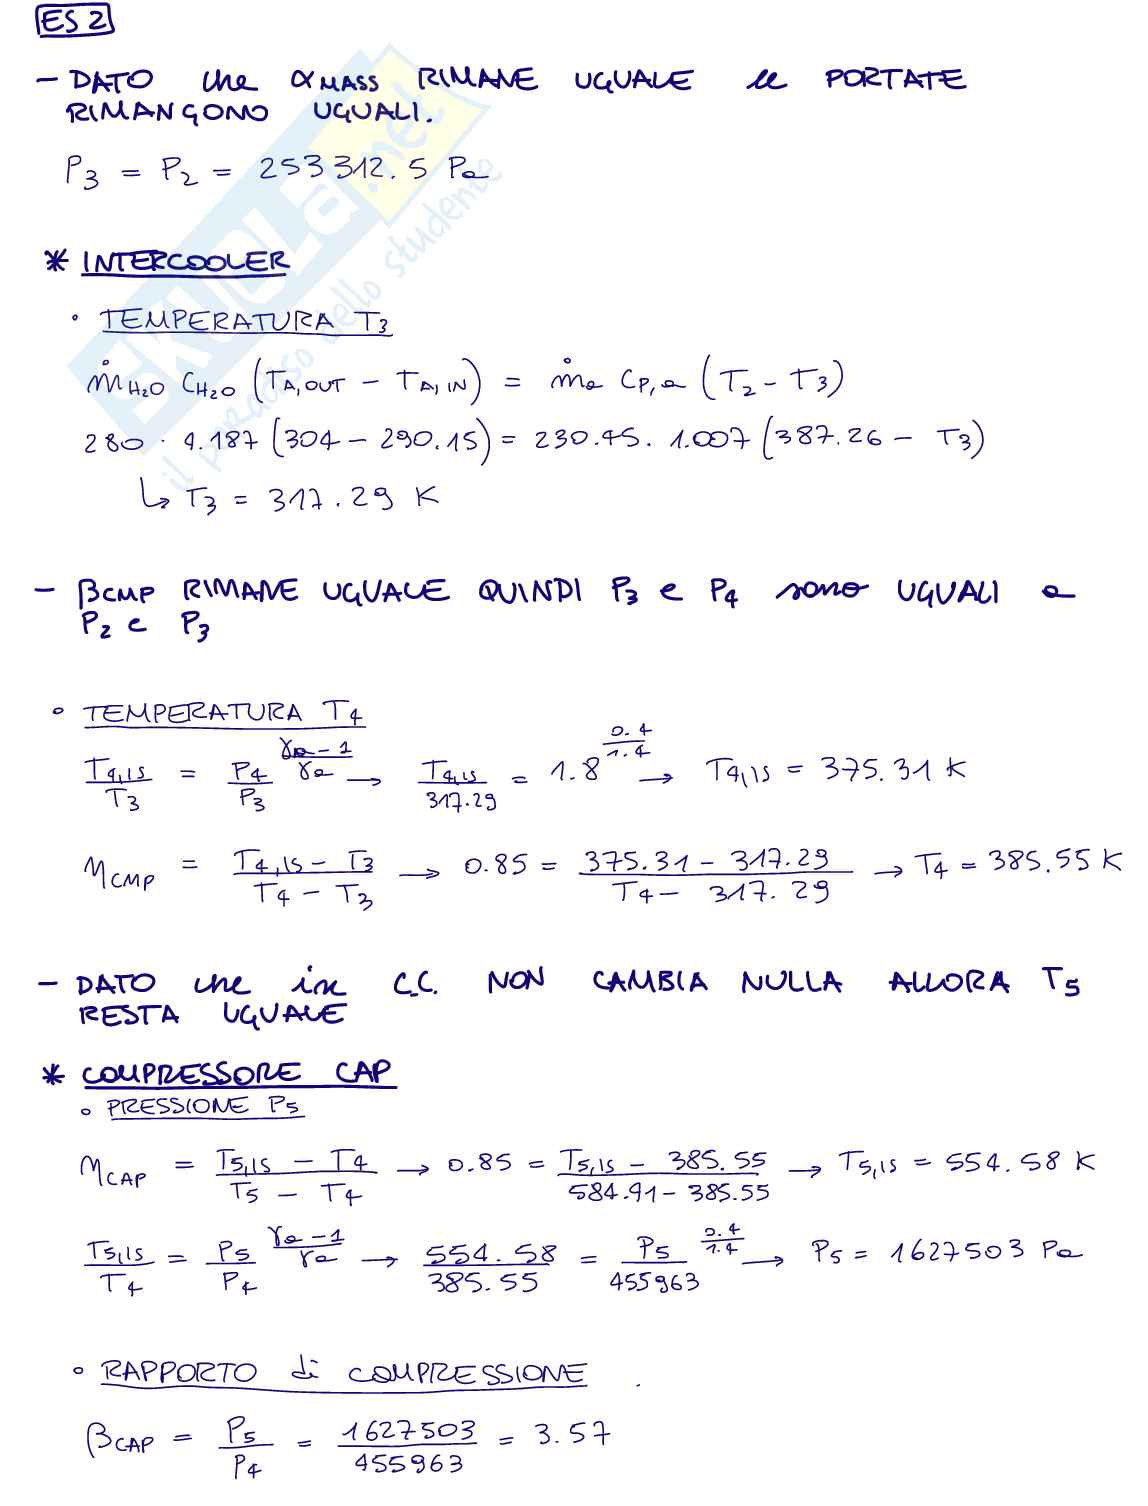 ES 2
- DATO che αMASS RIMANE UGUALE le PORTATE
RIMANGONO UGUALI.
P3 = P2 = 253312.5 Pa
* INTERCOOLER
• TEMPERATURA T3
ṁH2O CH2O (TA,OUT - TA,IN) = ṁa CP,a (T2 - T3)
280 · 4.187 (304 - 290.15) = 230.45 · 1.007 (387.26 - T3)
↳ T3 = 317.29 K
- βCMP RIMANE UGUALE QUINDI P3 e P4 sono UGUALI a
P2 e P3
• TEMPERATURA T4
T4,IS / T3 = P4 / P3 ^ (γa - 1 / γa) → T4,IS / 317.29 = 1.8 ^ (0.4 / 1.4) → T4,IS = 375.31 K
ηCMP = T4,IS - T3 / T4 - T3 → 0.85 = 375.31 - 317.29 / T4 - 317.29 → T4 = 385.55 K
- DATO che in C.C. NON CAMBIA NULLA ALLORA T5
RESTA UGUALE
* COMPRESSORE CAP
• PRESSIONE P5
ηCAP = T5,IS - T4 / T5 - T4 → 0.85 = T5,IS - 385.55 / 584.91 - 385.55 → T5,IS = 554.58 K
T5,IS / T4 = P5 / P4 ^ (γa - 1 / γa) → 554.58 / 385.55 = P5 / 455963 ^ (0.4 / 1.4) → P5 = 1627503 Pa
• RAPPORTO di COMPRESSIONE
βCAP = P5 / P4 = 1627503 / 455963 = 3.57
SKUOLA.net
il paradiso dello studente